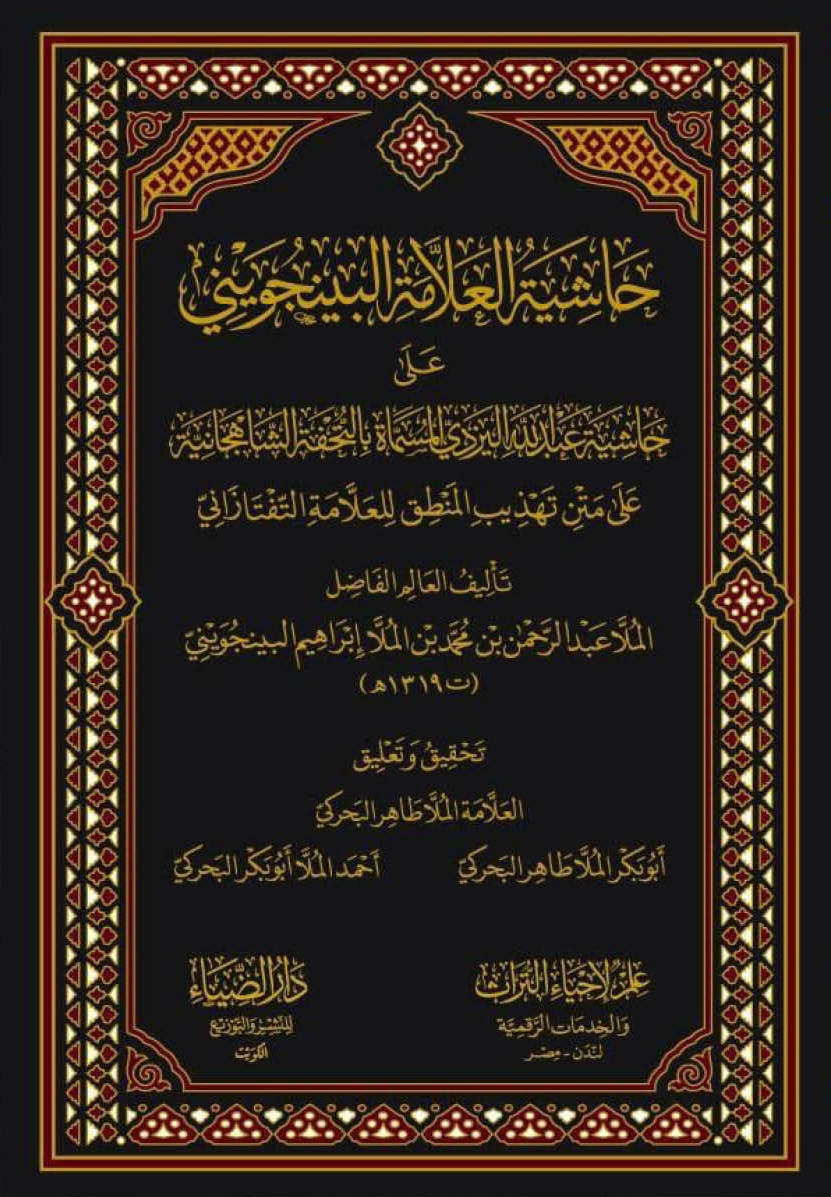 حَاشِيَةُ العَلَّامَةِ البَينجُوَيْنِي
عَلَى
حَاشِيَةِ عَبْدِ اللهِ اليَزْدِيِّ المُسَمَّاةِ بِالتُّحْفَةِ الشَّاهجَانِيَّةِ
عَلَى مَتْنِ تَهْذِيبِ المَنْطِقِ لِلعَلَّامَةِ التَّفْتَازَانِيّ
تَأْلِيفُ العَالِمِ الفَاضِل
المُلَّا عَبْد الرَّحْمٰن بْن مُحَمَّد بْن المُلَّا إِبْرَاهِيم البينجُوَيْنِيّ
(ت ١٣١٩ هـ)
تَحْقِيقُ وَتَعْلِيق
العَلَّامَة المُلَّا طَاهِر البَحركيّ
أَبُوبَكْر المُلَّا طَاهِر البَحركيّ
أَحْمَد المُلَّا أَبُوبَكْر البَحركيّ
عِلْمٌ لِإِحْيَاءِ التُّرَاثِ
وَالخِدمَات الرَّقمِيَّة
لَنْدَن - مِصْر
دَارُ الضِّيَاءِ
لِلنَّشْرِ وَالتَّوْزِيعِ
الكُوَيْت